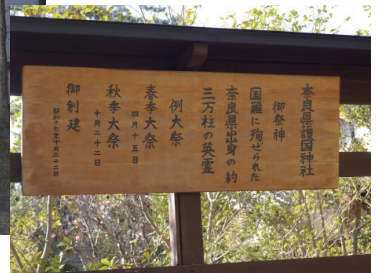 奈良県護国神社
御祭神
国難に殉ぜられた
奈良県出身の約
三万柱の英霊
例大祭
春季大祭
四月十五日
秋季大祭
十月二十二日
御創建
昭和十七年十月二十二日